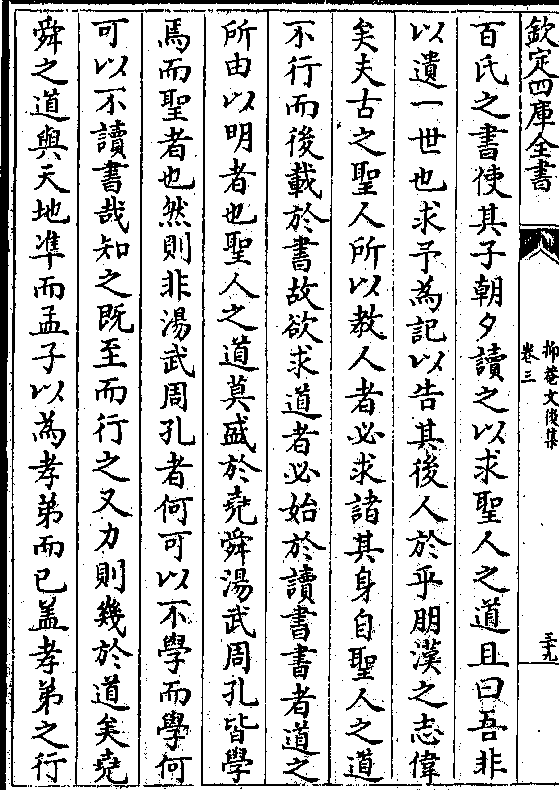 欽定四庫全書
抑菴文後集
卷三
三十九
百氏之書使其子朝夕讀之以求聖人之道且曰吾非
以遺一世也求予為記以告其後人於乎朋漢之志偉
矣夫古之聖人所以教人者必求諸其身自聖人之道
不行而後載於書故欲求道者必始於讀書書者道之
所由以明者也聖人之道莫盛於堯舜湯武周孔皆學
焉而聖者也然則非湯武周孔者何可以不學而學何
可以不讀書哉知之既至而行之又力則幾於道矣堯
舜之道與天地凖而孟子以為孝弟而已盖孝弟之行